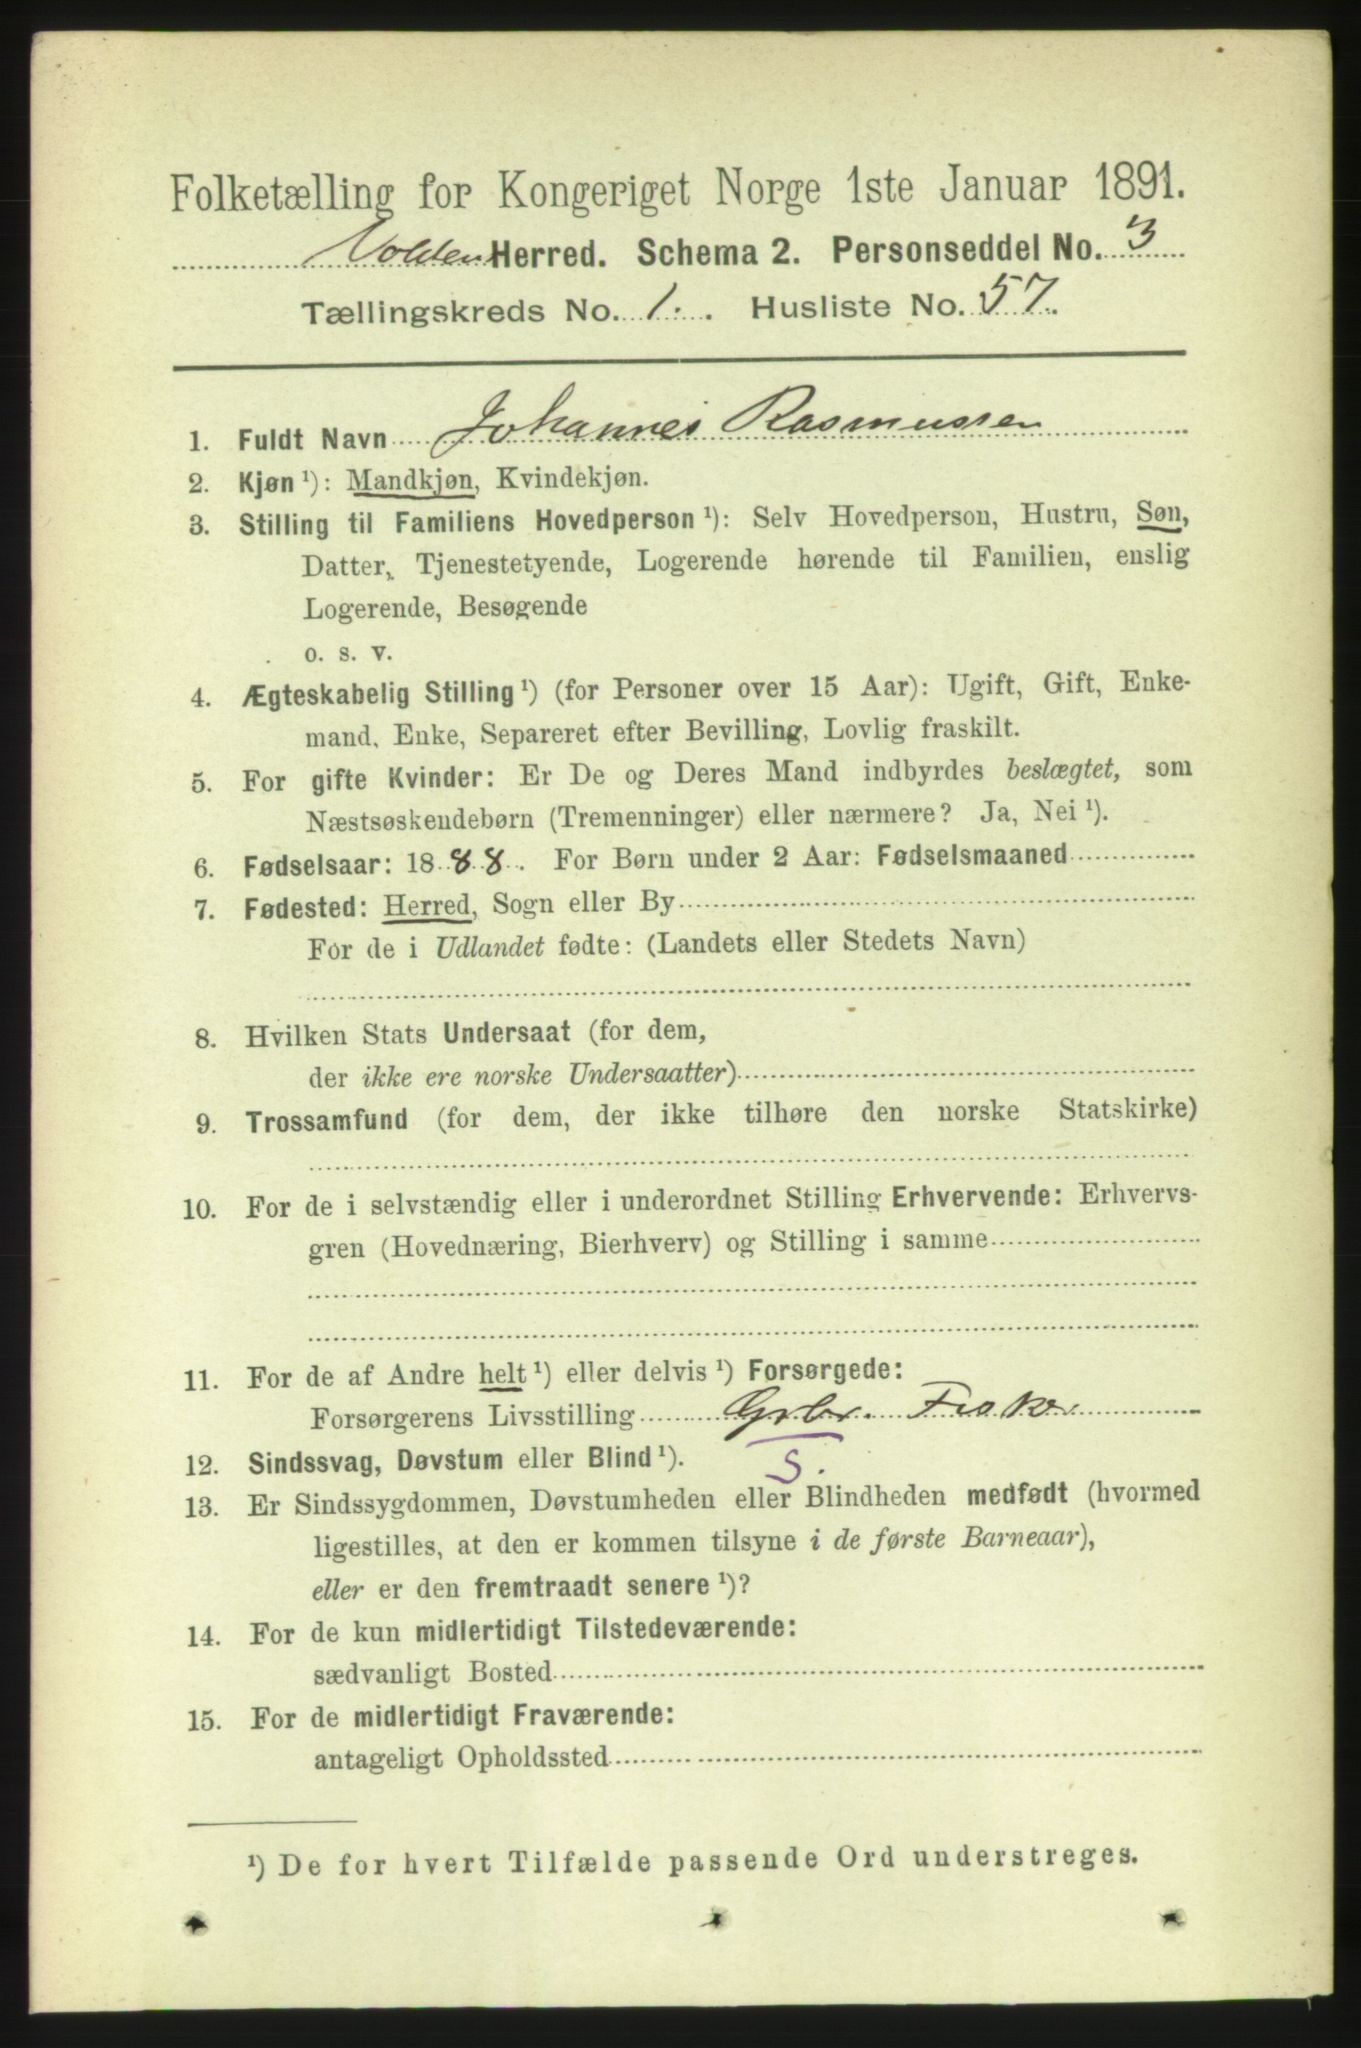 Folketælling for Kongeriget Norge 1ste Januar 1891.
Volden Herred. Schema 2. Personseddel No. 3
Tællingskreds No. 1. Husliste No. 57.
1. Fuldt Navn Johannes Rasmussen
2. Kjøn ¹): Mandkjøn, Kvindekjøn.
3. Stilling til Familiens Hovedperson ¹): Selv Hovedperson, Hustru, Søn,
Datter, Tjenestetyende, Logerende hørende til Familien, enslig
Logerende, Besøgende
o. s. v.
4. Ægteskabelig Stilling ¹) (for Personer over 15 Aar): Ugift, Gift, Enke-
mand, Enke, Separeret efter Bevilling, Lovlig fraskilt.
5. For gifte Kvinder: Er De og Deres Mand indbyrdes beslægtet, som
Næstsøskendebørn (Tremenninger) eller nærmere? Ja, Nei ¹).
6. Fødselsaar: 1888. For Børn under 2 Aar: Fødselsmaaned
7. Fødested: Herred, Sogn eller By
For de i Udlandet fødte: (Landets eller Stedets Navn)
8. Hvilken Stats Undersaat (for dem,
der ikke ere norske Undersaatter)
9. Trossamfund (for dem, der ikke tilhøre den norske Statskirke)
10. For de i selvstændig eller i underordnet Stilling Erhvervende: Erhvervs-
gren (Hovednæring, Bierhverv) og Stilling i samme
11. For de af Andre helt ¹) eller delvis ¹) Forsørgede:
Forsørgerens Livsstilling Grbr. Fisker
S.
12. Sindssvag, Døvstum eller Blind ¹).
13. Er Sindssygdommen, Døvstumheden eller Blindheden medfødt (hvormed
ligestilles, at den er kommen tilsyne i de første Barneaar),
eller er den fremtraadt senere ¹)?
14. For de kun midlertidigt Tilstedeværende:
sædvanligt Bosted
15. For de midlertidigt Fraværende:
antageligt Opholdssted
¹) De for hvert Tilfælde passende Ord understreges.